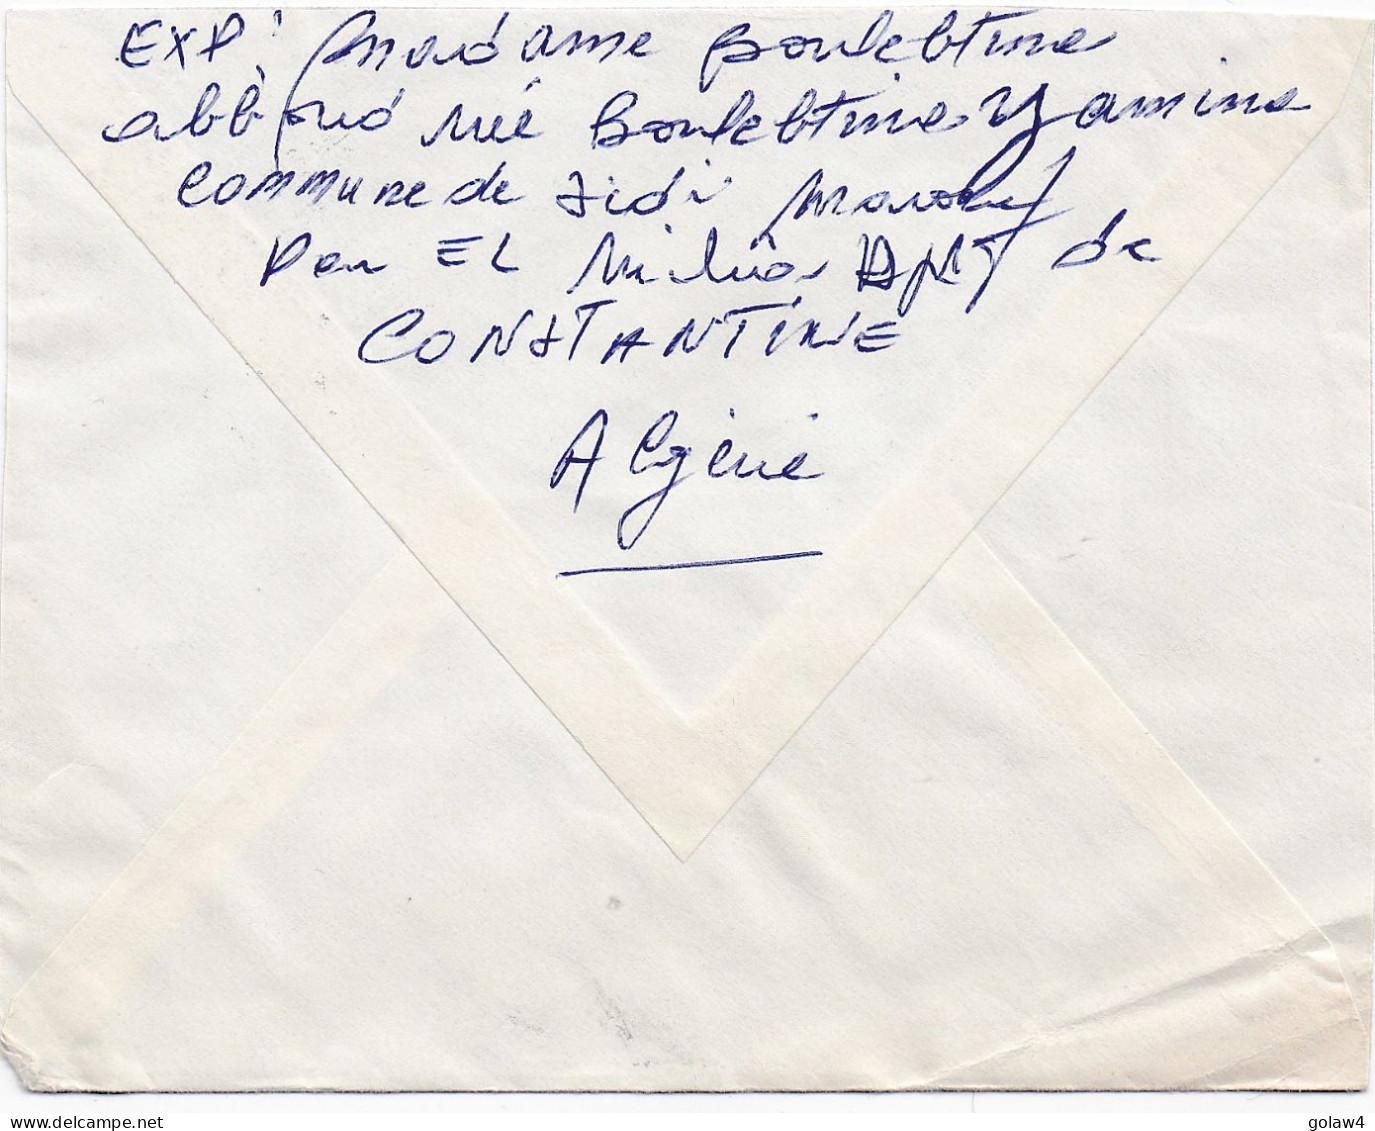 EXP: Madame Boulebtina
abboud née Boulebtina Yamina
commune de Sidi Marouf
Par EL Milia DPT de
CONSTANTINE
Algérie
delcampe.net
golaw4